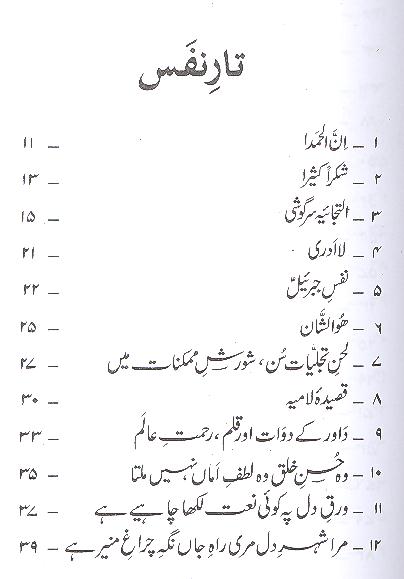 تارِ نفَس
۱ – اِنَّ الحمدا – ۱۱
۲ – شکراً کثیرا – ۱۳
۳ – التجائیہ سرگوشی – ۱۵
۴ – لا ادری – ۲۱
۵ – نفسِ جبرئیلؑ – ۲۲
۶ – ھوالشّان – ۲۵
۷ – لحنِ تجلیّات سُن، شورشِ ممکنات میں – ۲۷
۸ – قصیدۂ لامیہ – ۳۰
۹ – دَاور کے دوَات اور قلم، رحمتِ عالَم – ۳۳
۱۰ – وہ حُسنِ خلق وہ لطفِ اماں نہیں ملتا – ۳۵
۱۱ – ورقِ دل پہ کوئی نعت لکھا چاہیے ہے – ۳۷
۱۲ – مرا شہرِ دل مری راہِ جاں نگہِ چراغِ منیر ہے – ۳۹